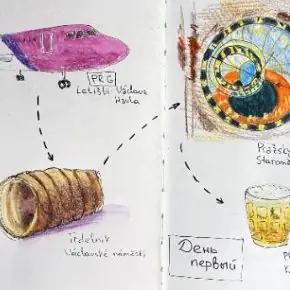 PRG
Letiště Václava
Havla
trdelník
Václavské náměstí
Pražský
Starom
День
первый